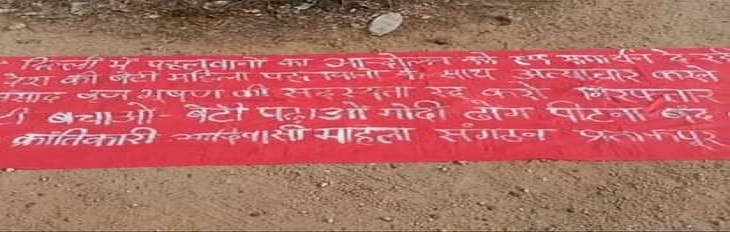 दिल्ली में पहलवानों का आन्दोलन को हम समर्थन दे रहे
देश की बेटी महिला पहलवानों के साथ अत्याचार करने
सांसद बृज भूषण की सदस्यता रद्द करो गिरफ्तार
बचाओ बेटी पढ़ाओ मोदी ढोंग पीटना बंद
क्रांतिकारी आदिवासी महिला संगठन प्रतापपुर